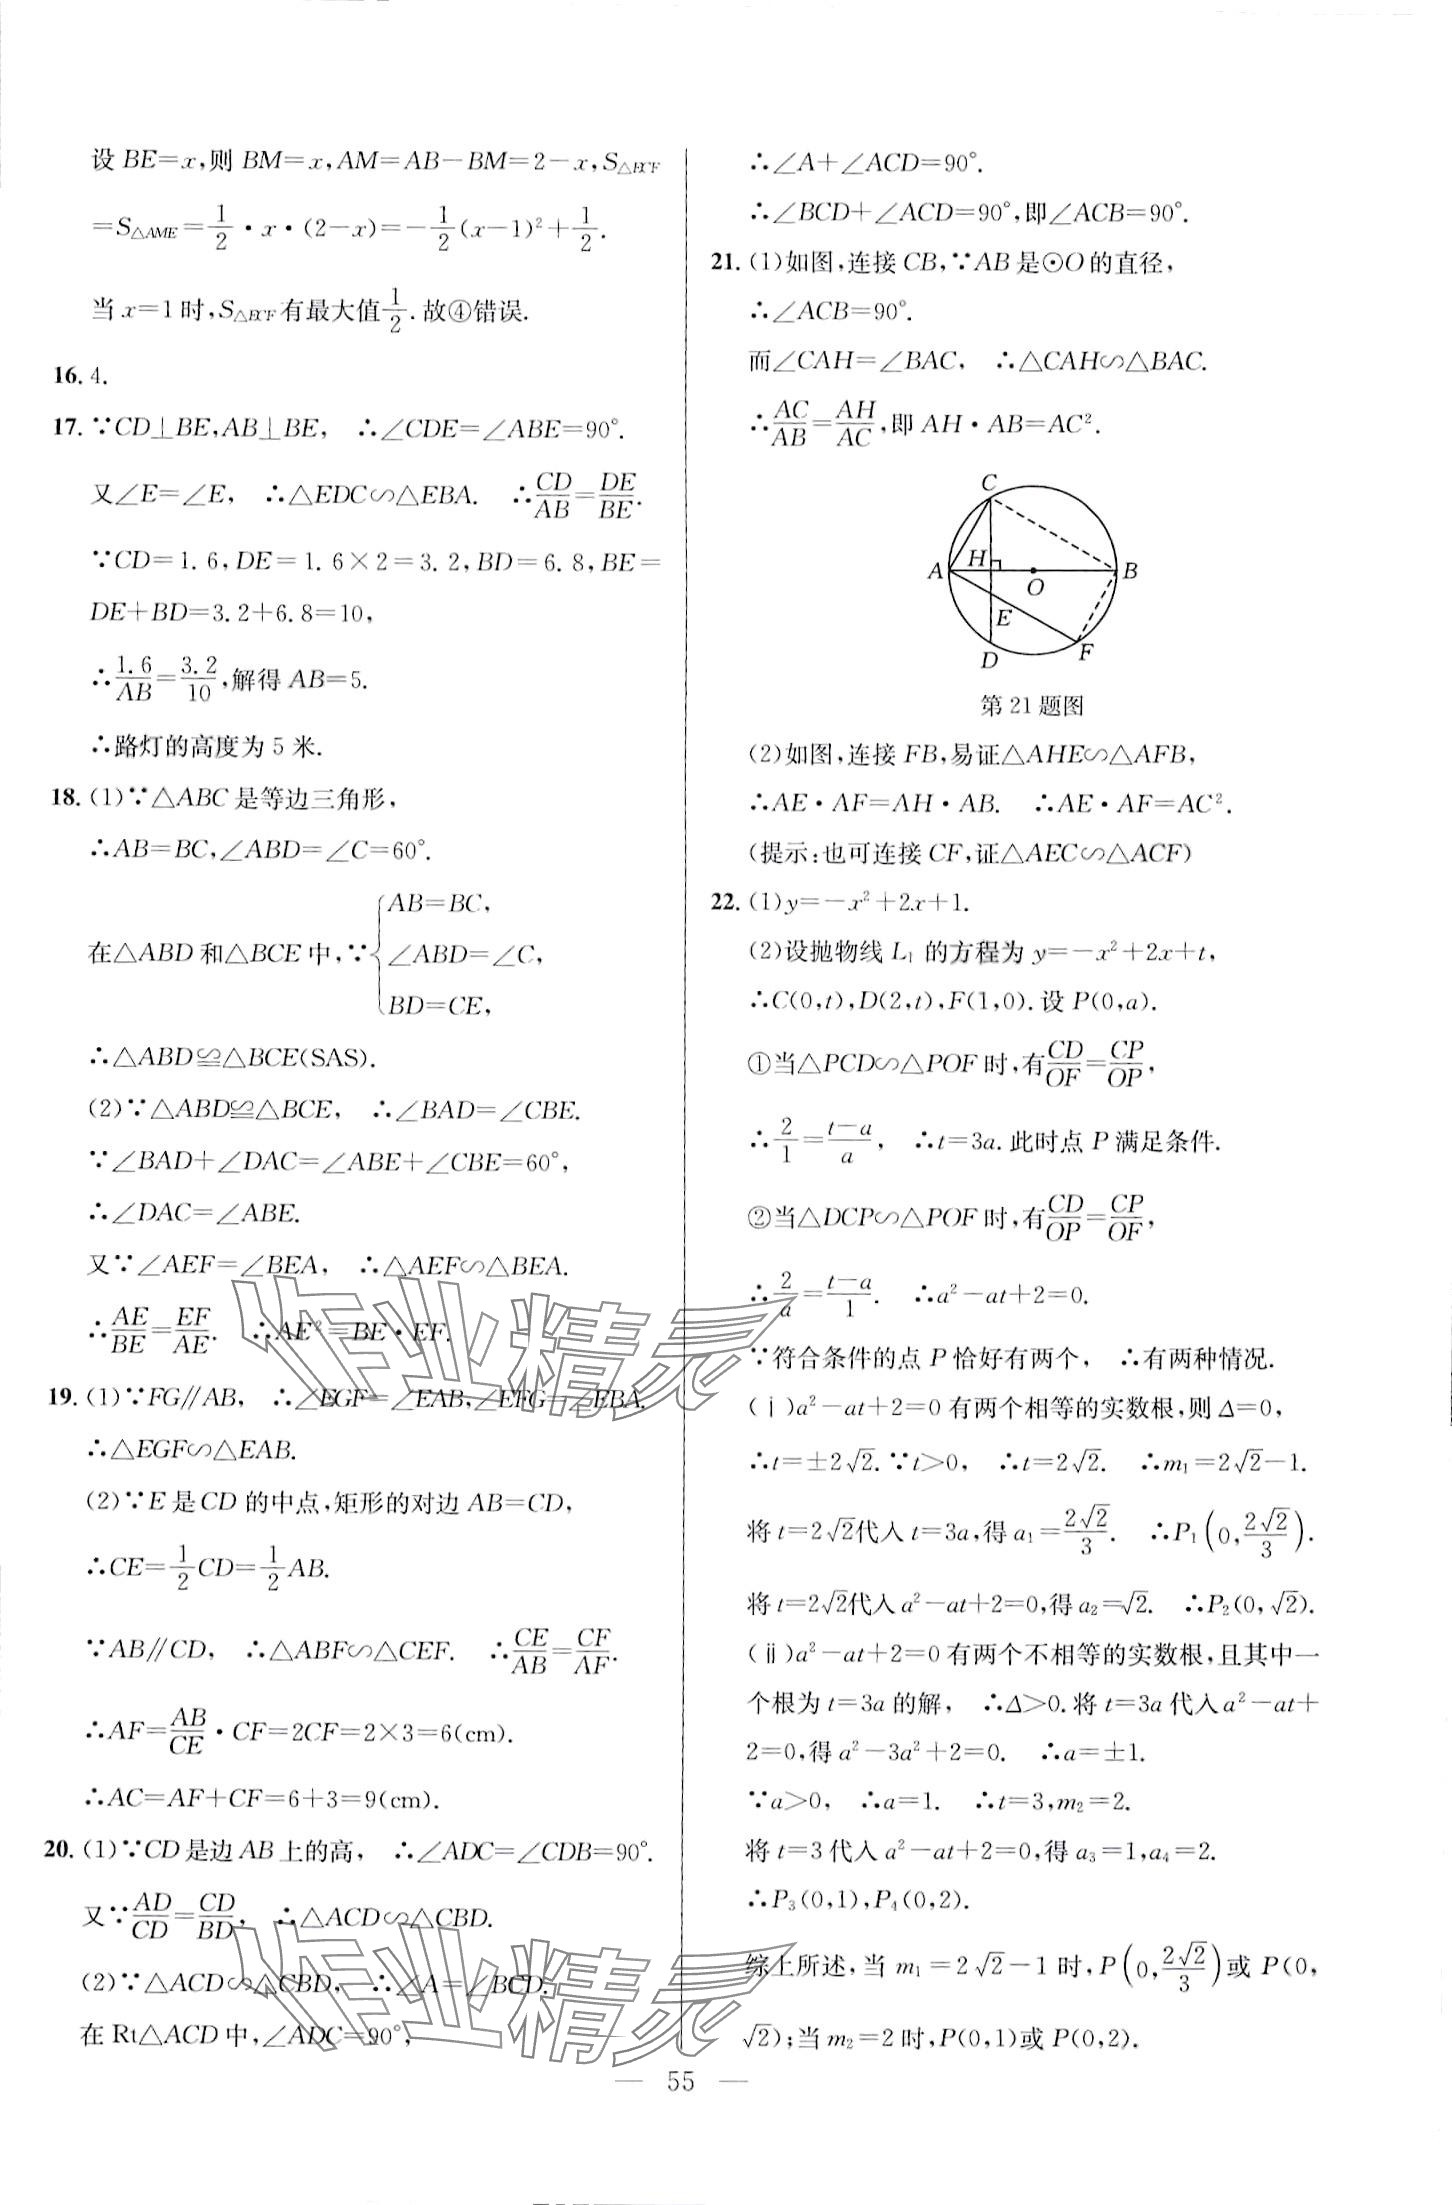 设 BE=x,则 BM=x,AM=AB-BM=2-x,S△ECF
=S△AME=1/2·x·(2-x)=-1/2(x-1)²+1/2.
当 x=1 时,S△ECF有最大值1/2.故④错误.
16. 4.
17. ∵CD⊥BE,AB⊥BE, ∴∠CDE=∠ABE=90°.
又∠E=∠E, ∴△EDC∽△EBA. ∴CD/AB=DE/BE.
∵CD=1.6,DE=1.6×2=3.2,BD=6.8,BE=
DE+BD=3.2+6.8=10,
∴1.6/AB=3.2/10,解得 AB=5.
∴路灯的高度为 5 米.
18. (1)∵△ABC 是等边三角形,
∴AB=BC,∠ABD=∠C=60°.
AB=BC,
在△ABD 和△BCE 中,∵{∠ABD=∠C,
BD=CE,
∴△ABD≌△BCE(SAS).
(2)∵△ABD≌△BCE, ∴∠BAD=∠CBE.
∵∠BAD+∠DAC=∠ABE+∠CBE=60°,
∴∠DAC=∠ABE.
又∵∠AEF=∠BEA, ∴△AEF∽△BEA.
∴AE/BE=EF/AE. ∴AE²=BE·EF.
19. (1)∵FG∥AB, ∴∠EGF=∠EAB,∠EFG=∠EBA.
∴△EGF∽△EAB.
(2)∵E 是 CD 的中点,矩形的对边 AB=CD,
∴CE=1/2CD=1/2AB.
∵AB∥CD, ∴△ABF∽△CEF. ∴CE/AB=CF/AF.
∴AF=AB/CE·CF=2CF=2×3=6(cm).
∴AC=AF+CF=6+3=9(cm).
20. (1)∵CD 是边 AB 上的高, ∴∠ADC=∠CDB=90°.
又∵AD/CD=CD/BD, ∴△ACD∽△CBD.
(2)∵△ACD∽△CBD, ∴∠A=∠BCD.
在 Rt△ACD 中,∠ADC=90°,
∴∠A+∠ACD=90°.
∴∠BCD+∠ACD=90°,即∠ACB=90°.
21. (1)如图,连接 CB,∵AB 是⊙O 的直径,
∴∠ACB=90°.
而∠CAH=∠BAC, ∴△CAH∽△BAC.
∴AC/AB=AH/AC,即 AH·AB=AC².
C
A H O B
E
D F
第 21 题图
(2)如图,连接 FB,易证△AHE∽△AFB,
∴AE·AF=AH·AB. ∴AE·AF=AC².
(提示:也可连接 CF,证△AEC∽△ACF)
22. (1)y=-x²+2x+1.
(2)设抛物线 L₁ 的方程为 y=-x²+2x+t,
∴C(0,t),D(2,t),F(1,0).设 P(0,a).
①当△PCD∽△POF 时,有CD/OF=CP/OP,
∴2/1=(t-a)/a, ∴t=3a.此时点 P 满足条件.
②当△DCP∽△POF 时,有CD/OP=CP/OF,
∴2/a=(t-a)/1. ∴a²-at+2=0.
∵符合条件的点 P 恰好有两个, ∴有两种情况.
(ⅰ)a²-at+2=0 有两个相等的实数根,则 Δ=0,
∴t=±2√2.∵t>0, ∴t=2√2. ∴m₁=2√2-1.
将 t=2√2代入 t=3a,得 a₁=2√2/3. ∴P₁(0,2√2/3).
将 t=2√2代入 a²-at+2=0,得 a₂=√2. ∴P₂(0,√2).
(ⅱ)a²-at+2=0 有两个不相等的实数根,且其中一
个根为 t=3a 的解, ∴Δ>0.将 t=3a 代入 a²-at+
2=0,得 a²-3a²+2=0. ∴a=±1.
∵a>0, ∴a=1. ∴t=3,m₂=2.
将 t=3 代入 a²-at+2=0,得 a₃=1,a₄=2.
∴P₃(0,1),P₄(0,2).
综上所述,当 m₁=2√2-1 时,P(0,2√2/3)或 P(0,
√2);当 m₂=2 时,P(0,1)或 P(0,2).
— 55 —
作业精灵
作业精灵